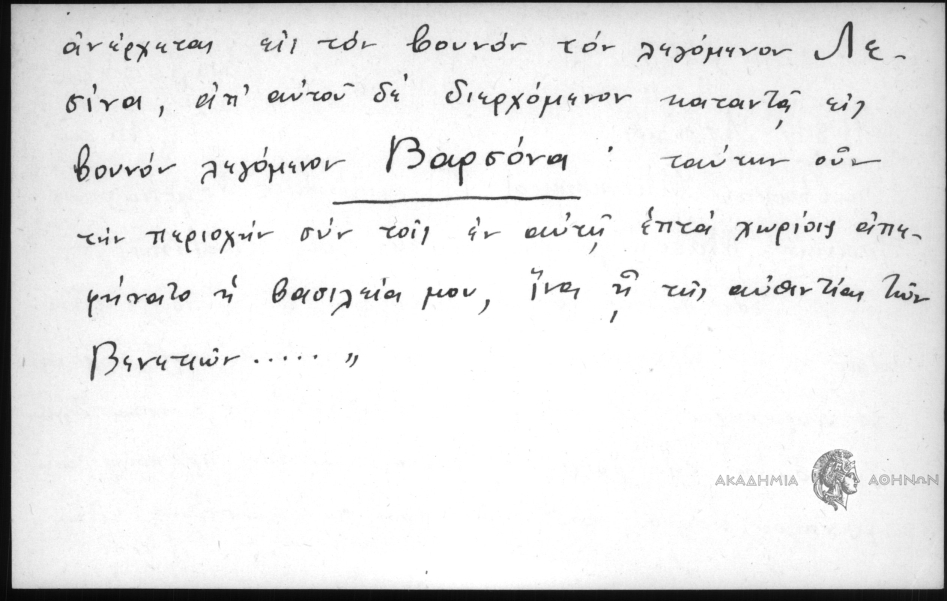 ἀνέρχεται εἰς τόν βουνόν τόν λεγόμενον Λε-
σίνα, ἀπ' αὐτοῦ δέ διερχόμενον καταντᾷ εἰς
βουνόν λεγόμενον Βαρσόνα · ταύτην οὖν
τήν περιοχήν σύν τοῖς ἐν αὐτῇ ἑπτά χωρίοις ἀπε-
φήνατο ἡ βασιλεία μου, ἵνα ᾖ τῆς αὐθεντίας τῶν
Βενετικῶν ..... „
ΑΚΑΔΗΜΙΑ ΑΘΗΝΩΝ